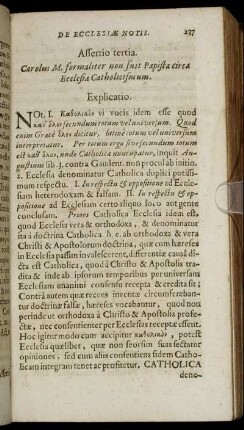 DE ECCLESIÆ NOTIS. 237
Assertio tertia.
Carolus M. formaliter non fuit Papista circa
Ecclesia Catholicismum.
Explicatio.
NOt. I. Καθολικὸν vi vocis idem esse quod
καθ' ὅλον secundum totum vel universum. Quod
enim Græcè ὅλον dicitur, latinè totum vel universum
interpretatur. Per totum ergo sive secundum totum
est καθ' ὅλον, unde Catholica nuncupatur, inquit Au-
gustinus lib. 3. contra Gaudent. non procul ab initio.
2. Ecclesia denominatur Catholica duplici potissi-
mum respectu. I. In respectu & oppositione ad Eccle-
siam heterodoxam & falsam. II. In respectu & op-
positione ad Ecclesiam certo aliquo loco aut gente
conclusam. Priore Catholica Ecclesia idem est,
quod Ecclesia vera & orthodoxa, & denominatur
ita à doctrina Catholica h. e. ab orthodoxa & vera
Christi & Apostolorum doctrina, quæ cum hæreses
in Ecclesia passim invalescerent, differentiæ causâ di-
cta est Catholica, quod à Christo & Apostolis tra-
dita & inde ab ipsorum temporibus per universam
Ecclesiam unanimi consensu recepta & credita sit;
Contrà autem quæ recens inventæ circumfereban-
tur doctrinæ falsæ, hæreses vocabantur, quod non
perinde ut orthodoxa à Christo & Apostolis profe-
ctæ, nec consentienter per Ecclesias receptæ essent.
Hoc igitur modo cum accipitur καθολικὸν, potest
Ecclesia quælibet, quæ non seorsim suas sectatur
opiniones, sed cum aliis consentiens fidem Catho-
licam integram tenet ac profitetur, CATHOLICA
deno-